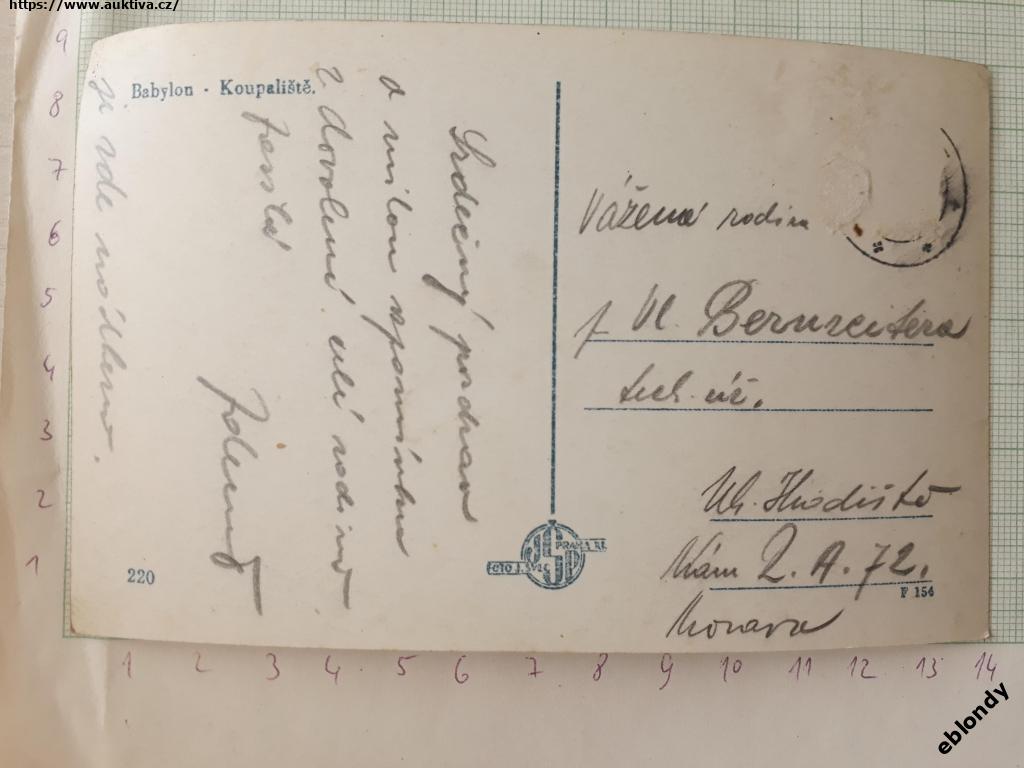 https://www.auktiva.cz/
Babylon - Koupaliště.
Srdečný pozdrav
a milou vzpomínku
z dovolené celé rodině
posílá
Vážená rodina
p Vl. Bernreitera
tech. úř.
Uh. Hradiště
Nám 2. A. 72.
Morava
FOTO J. SVEC
PRAHA XI.
220
F 154
9
8
7
6
5
4
3
2
1
1 2 3 4 5 6 7 8 9 10 11 12 13 14
eblondy